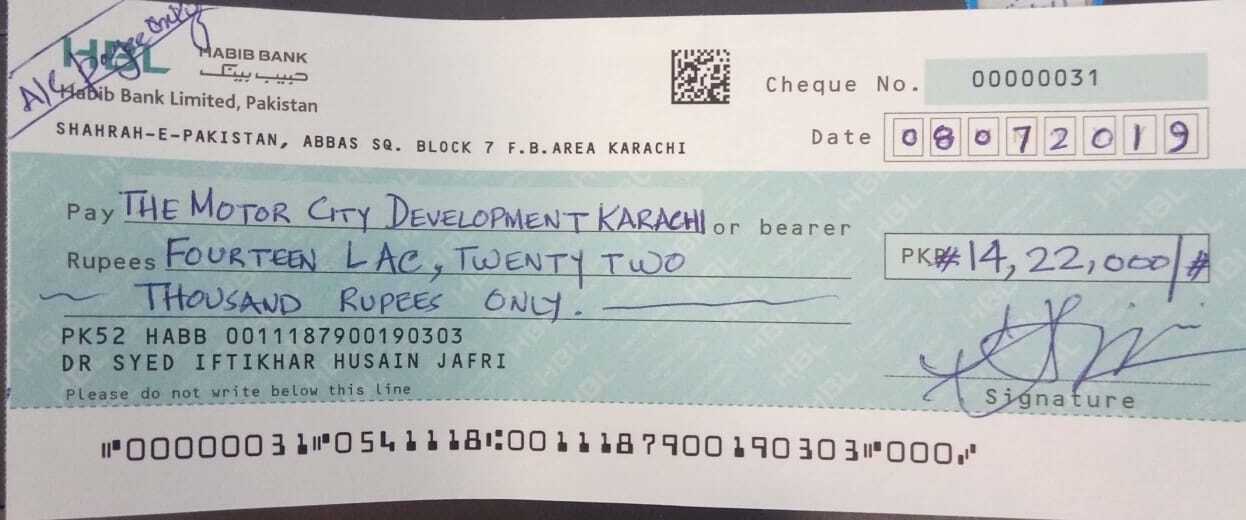 A/C payee only
HBL HABIB BANK
حبيب بينک
Habib Bank Limited, Pakistan
SHAHRAH-E-PAKISTAN, ABBAS SQ. BLOCK 7 F.B.AREA KARACHI
Cheque No. 00000031
Date 08072019
Pay THE MOTOR CITY DEVELOPMENT KARACHI or bearer
Rupees FOURTEEN LAC, TWENTY TWO
THOUSAND RUPEES ONLY.
PKR # 14,22,000/#
PK52 HABB 0011187900190303
DR SYED IFTIKHAR HUSAIN JAFRI
Please do not write below this line
Signature
⑈00000031⑈0541118⑆0011187900190303⑈000⑇